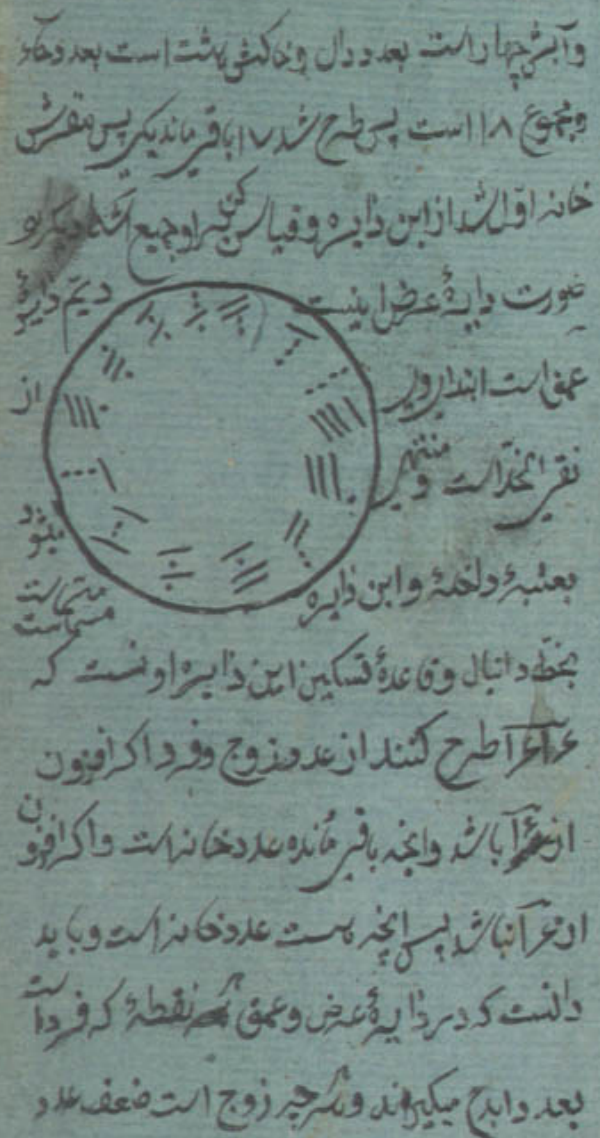 وآبش چهار است بعدد دال و خاکش هشت است بعدد حاء
و مجموع ۱۸ است پس طرح شد ۱۷ باقی ماند یکی پس مقرش
خانه اوّل شد از این دایره و قیاس کن براو جمیع اشکال دیگر
صورت دایرهٔ عرض اینست دیّم دایرهٔ
عمق است ابتدا از
نقی الخد است و منتهی میشود
بعتبهٔ داخله و این دایره
بخط دانیال و قاعدهٔ تسکین این دایره اونست که
طرح کنند از عدد زوج و فرد اگر افزون
از باشد وانچه باقی مانده عدد خانه است واکر افزون
از نباشد پس انچه هست عدد خانه است و باید
دانست که در دایرهٔ عرض و عمق نقطهٔ که فرد است
بعدد ابدح میکیرند و هرچه زوج است ضعف عدد